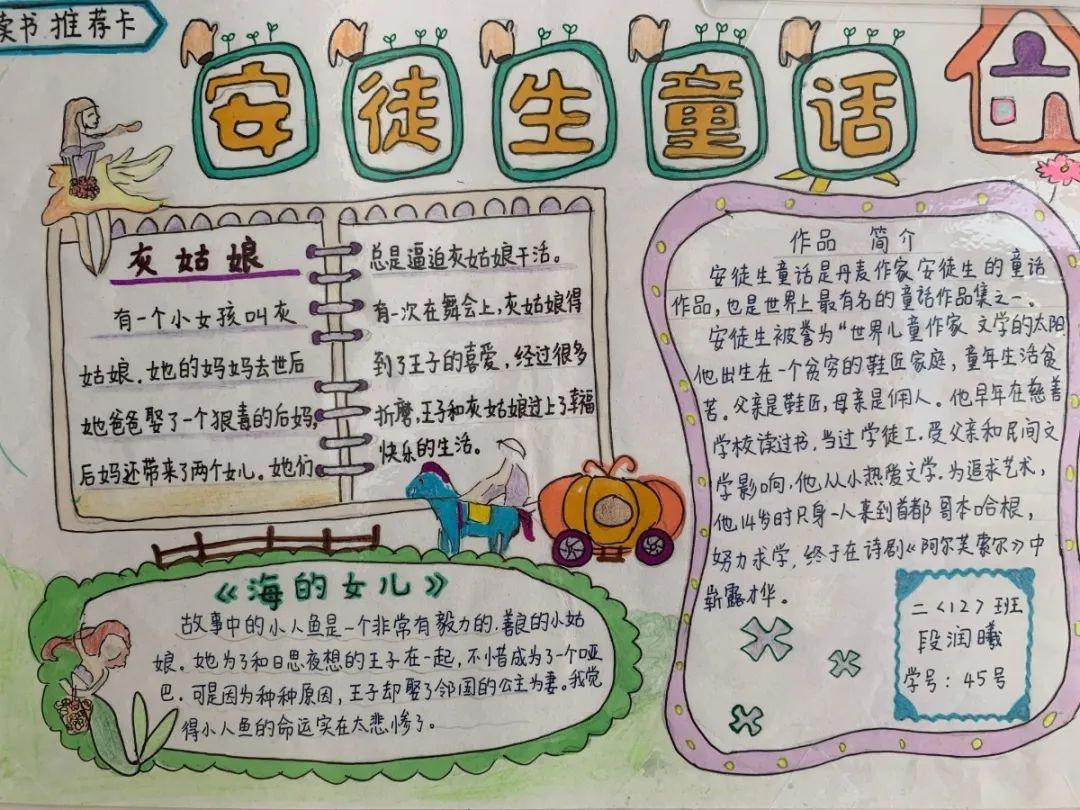 读书推荐卡
安徒生童话
灰姑娘
有一个小女孩叫灰
姑娘.她的妈妈去世后
她爸爸娶了一个狠毒的后妈,
后妈还带来了两个女儿。她们
总是逼迫灰姑娘干活。
有一次在舞会上,灰姑娘得
到了王子的喜爱,经过很多
折磨,王子和灰姑娘过上了幸福
快乐的生活。
作品 简介
安徒生童话是丹麦作家安徒生的童话
作品,也是世界上最有名的童话作品集之一。
安徒生被誉为“世界儿童作家 文学的太阳
他出生在一个贫穷的鞋匠家庭,童年生活贫
苦。父亲是鞋匠,母亲是佣人。他早年在慈善
学校读过书.当过学徒工.受父亲和民间文
学影响,他从小热爱文学.为追求艺术,
他14岁时只身一人来到首都哥本哈根,
努力求学,终于在诗剧《阿尔芙索尔》中
崭露才华。
《海的女儿》
故事中的小人鱼是一个非常有毅力的.善良的小姑
娘.她为了和日思夜想的王子在一起,不惜成为了一个哑
巴.可是因为种种原因,王子却娶了邻国的公主为妻。我觉
得小人鱼的命运实在太悲惨了。
二〈12〉班
段润曦
学号:45号